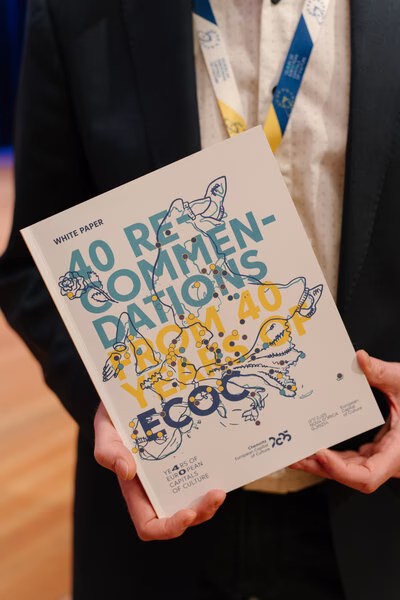 WHITE PAPER
40 RE-
COMMEN-
DATIONS
FROM 40
YEARS OF
ECOC
YE4RS OF
EUR0PEAN
CAPITALS
OF CULTURE
Chemnitz
European Capital
of Culture
2025
European
Capital
of Culture